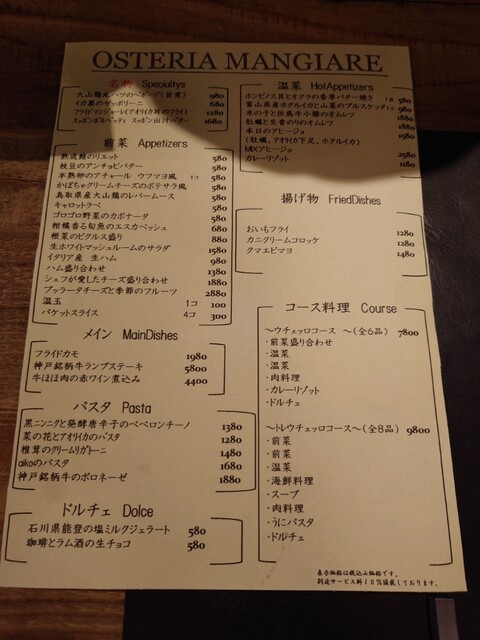 OSTERIA MANGIARE
名物 Specialtys
980
イカ墨のゼッポリーニ 680
1280
1680
前菜 Appetizers
熟成鮪のリエット 580
枝豆のアンチョビバター 580
半熟卵のアチャール ウフマヨ風 1コ 580
かぼちゃクリームチーズのポテサラ風 580
鳥取県産大山鶏のレバームース 580
キャロットラペ 580
ゴロゴロ野菜のカポナータ 580
柑橘香る旬魚のエスカベッシュ 680
根菜のピクルス盛り 880
生ホワイトマッシュルームのサラダ 1580
イタリア産 生ハム 980
ハム盛り合わせ 1380
シェフが愛したチーズ盛り合わせ 1880
ブッラータチーズと季節のフルーツ 2880
温玉 1コ 100
バケットスライス 4コ 300
メイン MainDishes
フライドカモ 1980
神戸銘柄牛ランプステーキ 5800
牛ほほ肉の赤ワイン煮込み 4400
パスタ Pasta
黒ニンニクと発酵唐辛子のペペロンチーノ 1380
菜の花とアオリイカのパスタ 1280
椎茸のクリームリガトーニ 1480
aikoのパスタ 1680
神戸銘柄牛のボロネーゼ 1880
ドルチェ Dolce
石川県能登の塩ミルクジェラート 580
珈琲とラム酒の生チョコ 580
温菜 HotAppetizers
ホンビノス貝とオクラの香草バター焼き 580
富山県産ホタルイカと山菜のブルスケッタ 980
木の子と但馬牛小腸のオムレツ 1880
牡蠣と生青のりのオムレツ 1880
本日のアヒージョ
(牡蠣、アオリイカ下足、ホタルイカ) 1580
MIXアヒージョ 2580
カレーリゾット 1180
揚げ物 FriedDishes
おいもフライ 1280
カニクリームコロッケ 1280
クマエビマヨ 1480
コース料理 Course
〜ウチェッロコース 〜(全6品) 7800
・前菜盛り合わせ
・温菜
・温菜
・肉料理
・カレーリゾット
・ドルチェ
〜トレウチェッロコース〜(全8品) 9800
・前菜
・前菜
・温菜
・海鮮料理
・スープ
・肉料理
・うにパスタ
・ドルチェ
表示価格は税込み価格です。
別途サービス料10%頂戴しております。